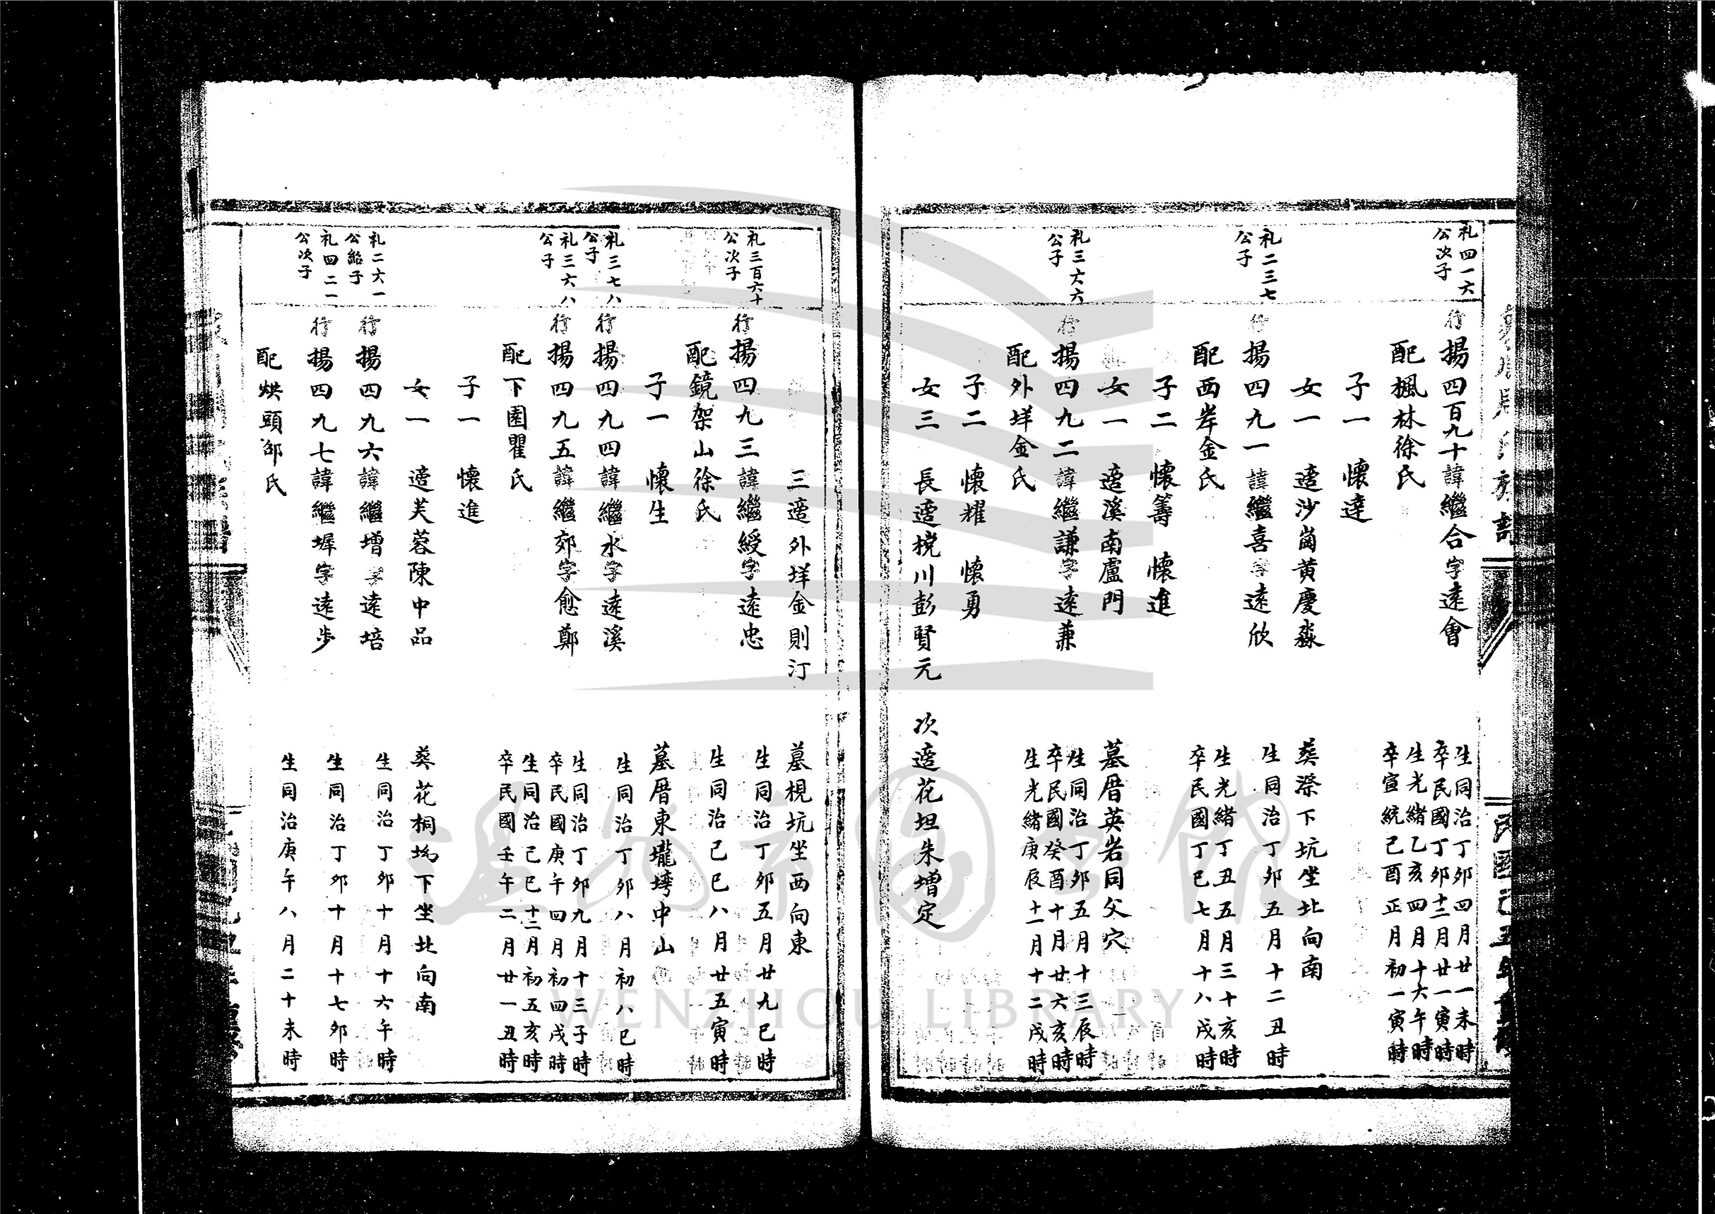 礼四一六
公次子
行揚四百九十諱繼合字遠會
生同治丁卯四月廿一未時
卒民國丁卯十二月廿一寅時
配楓林徐氏
生光緒乙亥四月十六午時
卒宣統己酉正月初一寅時
子一 懷達
女一 適沙崗黃慶淼
葬漈下坑坐北向南
礼二三七
公子
行揚四九一諱繼喜字遠欣
生同治丁卯五月十二丑時
配西岸金氏
生光緒丁丑五月三十亥時
卒民國丁巳七月十八戌時
子二 懷籌 懷進
女一 適溪南盧門
墓厝英岩同父穴
礼三六六
公子
行揚四九二諱繼謙字遠兼
生同治丁卯五月十三辰時
卒民國癸酉十月廿六亥時
配外垟金氏
生光緒庚辰十一月十二戌時
子二 懷耀 懷勇
女三 長適梘川彭賢元 次適花坦朱增定
三適外垟金則汀
墓梘坑坐西向東
礼三百六十
公次子
行揚四九三諱繼綬字遠忠
生同治丁卯五月廿九巳時
配鏡架山徐氏
生同治己巳八月廿五寅時
子一 懷生
墓厝東壠塆中山
礼三七八
公子
行揚四九四諱繼水字遠溪
生同治丁卯八月初八巳時
礼三六八
公子
行揚四九五諱繼郊字愈鄭
生同治丁卯九月十三子時
卒民國庚午四月初四戌時
配下園瞿氏
生同治己巳十二月初五亥時
卒民國壬午二月廿一丑時
子一 懷進
女一 適芙蓉陳中品
葬花桐塢下坐北向南
礼二六一
公紿子
行揚四九六諱繼增字遠培
生同治丁卯十月十六午時
礼四二一
公次子
行揚四九七諱繼墀字遠步
生同治丁卯十月十七卯時
配烘頭邵氏
生同治庚午八月二十未時
溫州市圖書館
WENZHOU LIBRARY